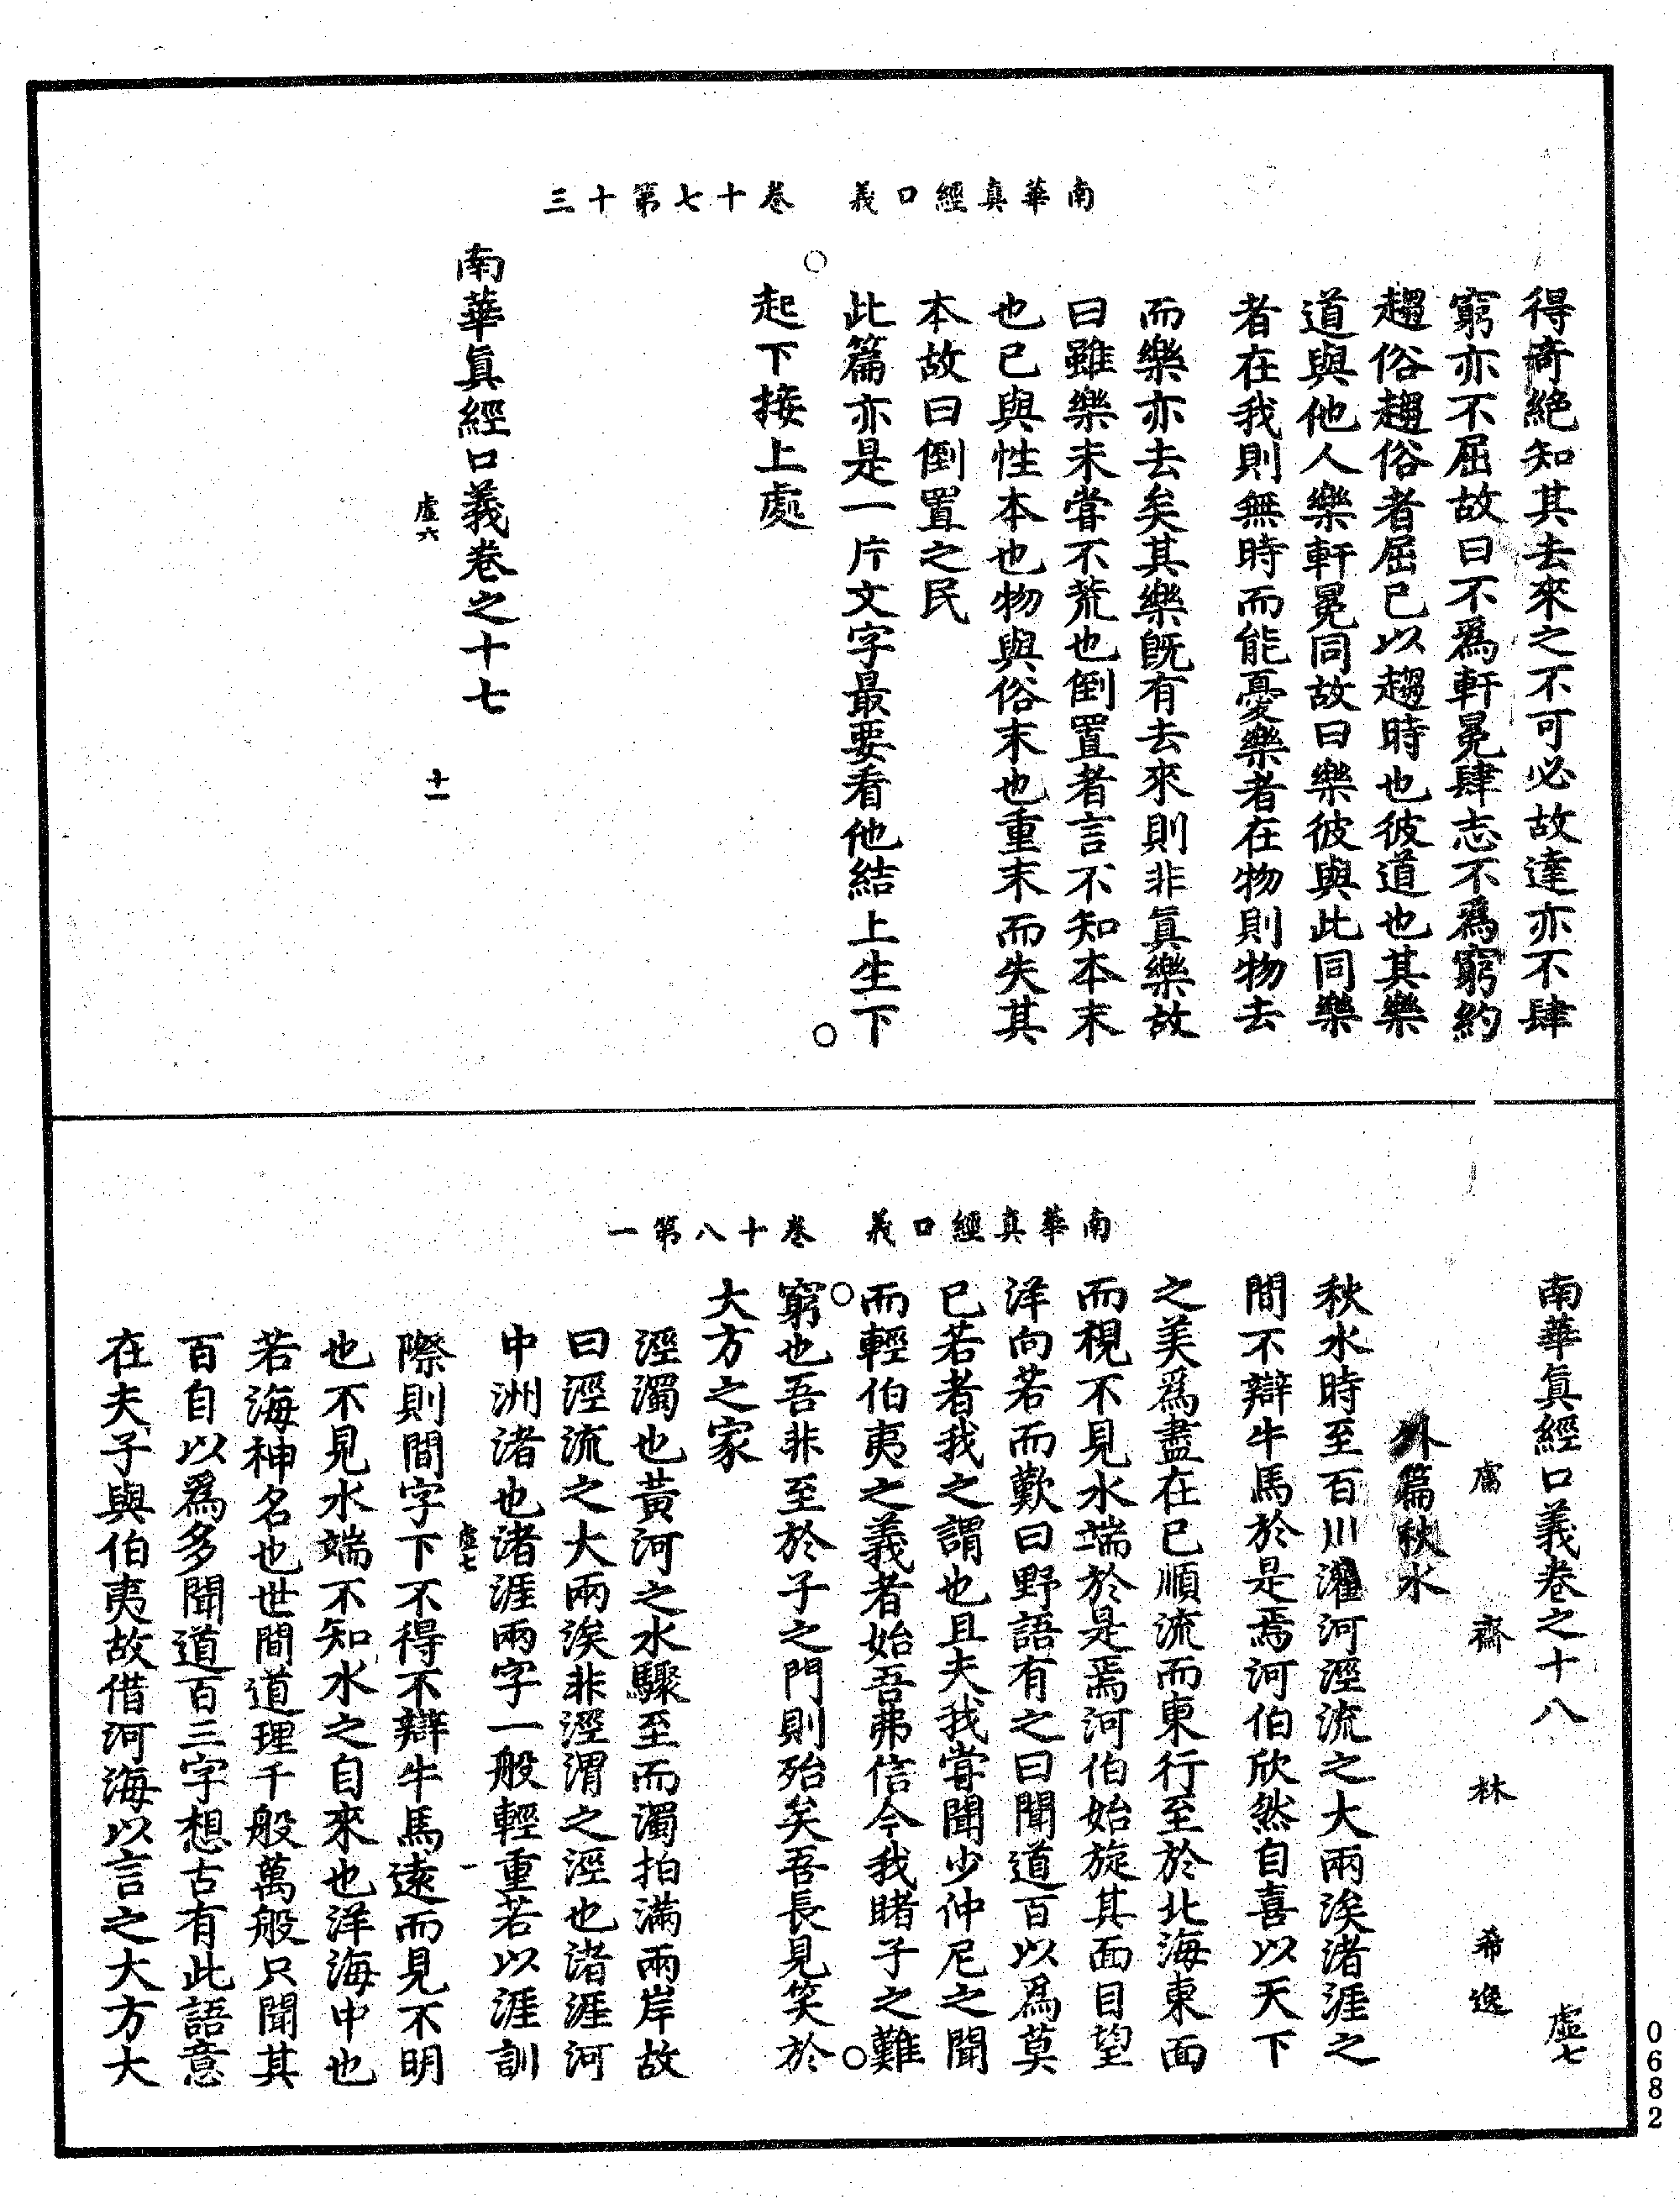 南華真經口義　卷十七第十三
得奇絕知其去來之不可必故達亦不肆
窮亦不屈故曰不爲軒冕肆志不爲窮約
趨俗趨俗者屈己以趨時也彼道也其樂
道與他人樂軒冕同故曰樂彼與此同樂
者在我則無時而能憂樂者在物則物去
而樂亦去矣其樂旣有去來則非眞樂故
曰雖樂未甞不荒也倒置者言不知本末
也己與性本也物與俗末也重末而失其
本故曰倒置之民
此篇亦是一片文字最要看他結上生下
起下接上處
南華眞經口義卷之十七
虛六　十一
南華真經口義　卷十八第一
南華眞經口義卷之十八　虛七
鬳齋林希逸
外篇秋水
秋水時至百川灌河涇流之大兩涘渚涯之
間不辯牛馬於是焉河伯欣然自喜以天下
之美爲盡在己順流而東行至於北海東面
而視不見水端於是焉河伯始旋其面目望
洋向若而歎曰野語有之曰聞道百以爲莫
己若者我之謂也且夫我甞聞少仲尼之聞
而輕伯夷之義者始吾弗信今我睹子之難
窮也吾非至於子之門則殆矣吾長見笑於
大方之家
涇濁也黃河之水驟至而濁拍滿兩岸故
曰涇流之大兩涘非涇渭之涇也渚涯河
中洲渚也渚涯兩字一般輕重若以涯訓
虛七　一
際則間字下不得不辯牛馬遠而見不明
也不見水端不知水之自來也洋海中也
若海神名也世間道理千般萬般只聞其
百自以爲多聞道百三字想古有此語意
在夫子與伯夷故借河海以言之大方大
0682